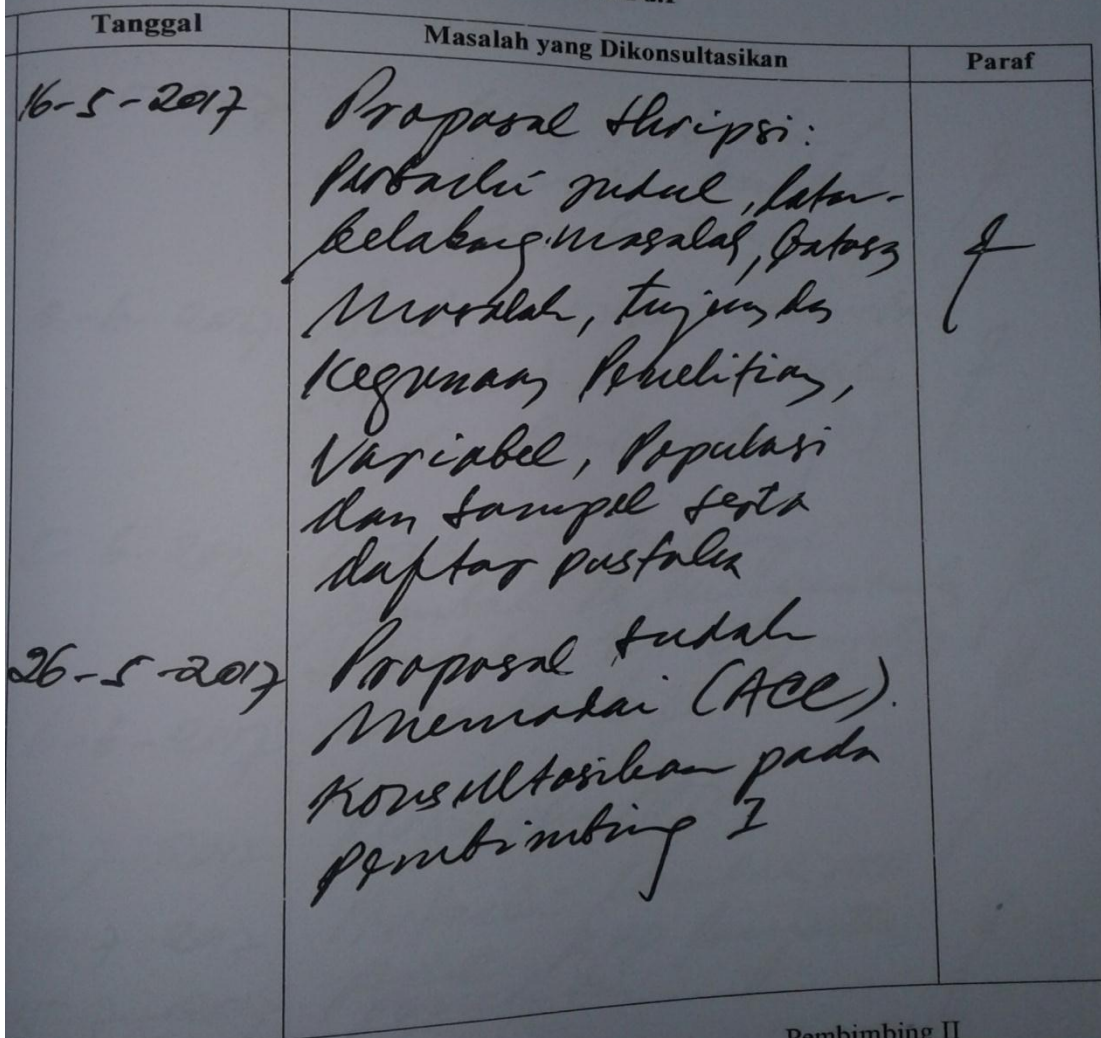 Tanggal
Masalah yang Dikonsultasikan
Paraf
16-5-2017
Proposal Skripsi:
Perbaiki judul, latar-
belakang masalah, batasan
Masalah, tujuan dan
Kegunaan Penelitian,
Variabel, Populasi
dan sampel serta
daftar pustaka
26-5-2017
Proposal sudah
Memadai (ACC).
Konsultasikan pada
Pembimbing I
Pembimbing II